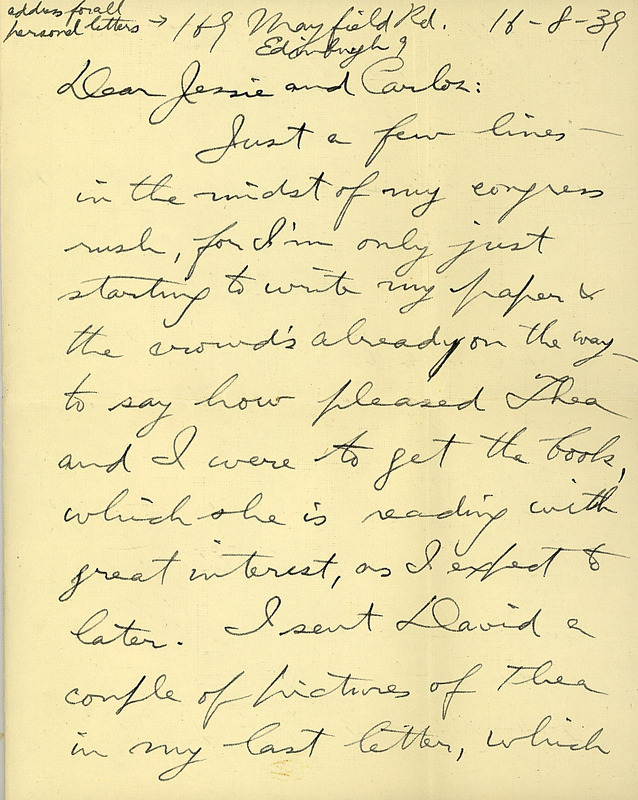 address for all
personal letters → 169 Mayfield Rd. 16-8-39
Edinburgh 9
Dear Jessie and Carlos:
Just a few lines —
in the midst of my congress
rush, for I'm only just
starting to write my paper &
the crowd's already on the way —
to say how pleased Thea
and I were to get the book,
which she is reading with
great interest, as I expect to
later. I sent David a
couple of pictures of Thea
in my last letter, which